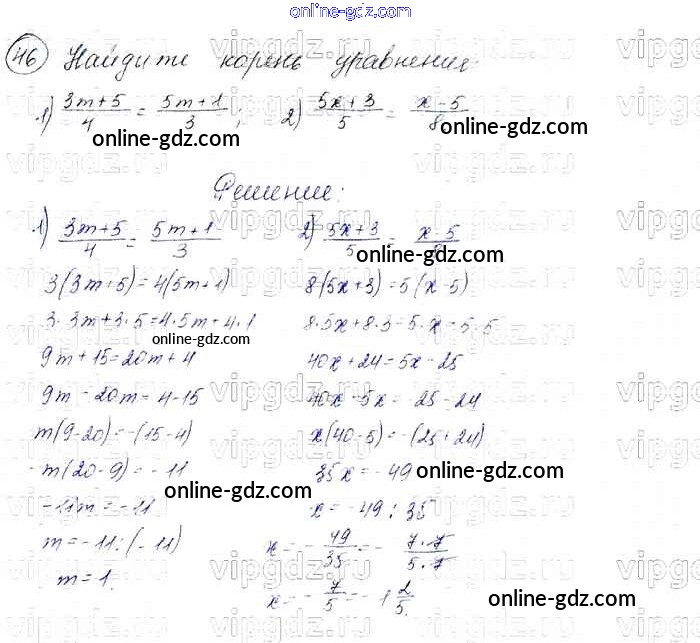 online-gdz.com
46 Найдите корень уравнения:
1) (3m+5)/4 = (5m+1)/3; 2) (5x+3)/5 = (x-5)/8
online-gdz.com online-gdz.com
Решение:
1) (3m+5)/4 = (5m+1)/3 2) (5x+3)/5 = (x-5)/
online-gdz.com
3(3m+5)=4(5m+1) 8(5x+3)=5(x-5)
online-gdz.com
3·3m+3·5=4·5m+4·1 8·5x+8·3=5·x-5·5
online-gdz.com
9m+15=20m+4 40x+24=5x-25
9m-20m=4-15 40x-5x=-25-24
online-gdz.com
m(9-20)=-(15-4) x(40-5)=-(25+24)
-m(20-9)=-11 35x=-49
online-gdz.com online-gdz.com
-11m=-11 x=-49:35
m=-11:(-11) x=-49/35=-(7·7)/(5·7)
m=1. x=-7/5=-1 2/5.
online-gdz.com
vipgdz.ru